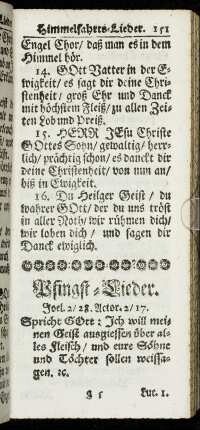 Himmelfahrts-Lieder. 151
Engel Chor/ daß man es in dem
Himmel hör.
14. GOtt Vatter in der E-
wigkeit/ es sagt dir deine Chri-
stenheit/ groß Ehr und Danck
mit höchstem Fleiß/ zu allen Zei-
ten Lob und Preiß.
15. HERR JEsu Christe
GOttes Sohn/ gewaltig/ herr-
lich/ prächtig schon/ es danckt dir
deine Christenheit/ von nun an/
biß in Ewigkeit.
16. Du Heilger Geist/ du
wahrer GOtt/ der du uns tröst
in aller Noth/ wir rühmen dich/
wir loben dich/ und sagen dir
Danck ewiglich.
Pfingst-Lieder.
Joel. 2/28. Actor. 2/17.
Spricht GOtt: Ich will mei-
nen Geist ausgiessen über al-
les Fleisch/ und eure Söhne
und Töchter sollen weissa-
gen. ꝛc.
g 5 Luc. 1.